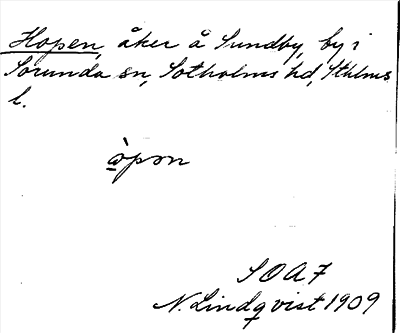 Hopen, åker å Sundby, by i
Sorunda sn, Sotholms hd, Sthlms
l.
òpən
SOA7
N. Lindqvist 1909